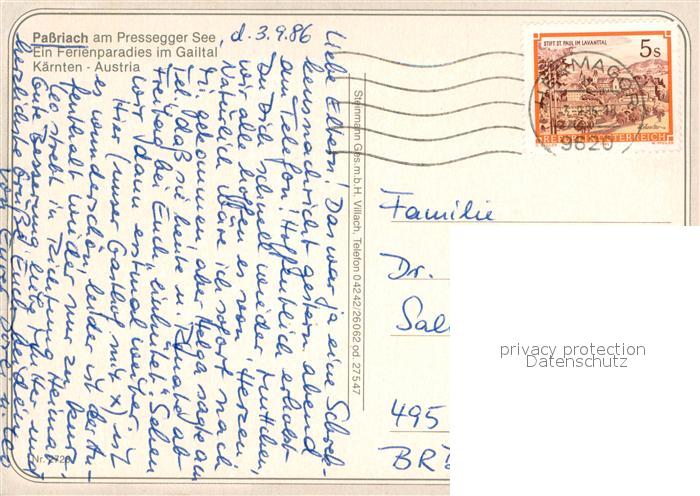 Paßriach am Pressegger See
Ein Ferienparadies im Gailtal
Kärnten - Austria
, d. 3.9.86
Liebe Eltern! Das war ja eine Schreck-
ensnachricht gestern abend
am Telefon! Hoffentlich erholst
Du Dich schnell wieder, Mutter,
wir alle hoffen es von Herzen.
Natürlich wäre ich sofort nach
gekommen, aber Helga sagte am
Tel. daß sie heute u. Renate ab
Freitag bei Euch Sehen
wir dann erstmal weiter.
Hier (unser Gasthof mit x) ist
es wunderschön, leider ist der Au-
fenthalt wieder nur zu kurz.
in Richtung Heimat.
Gute Besserung, liebe Mutter und
herzliche Grüße Euch beiden
von
Steinmann Ges.m.b.H. Villach, Telefon 04242/26062 od. 27547
Nr. 2720
STIFT ST. PAUL IM LAVANTTAL
5s
REPUBLIK ÖSTERREICH
HERMAGOR
9620
Familie
Dr.
Sal
495
BRD
privacy protection
Datenschutz